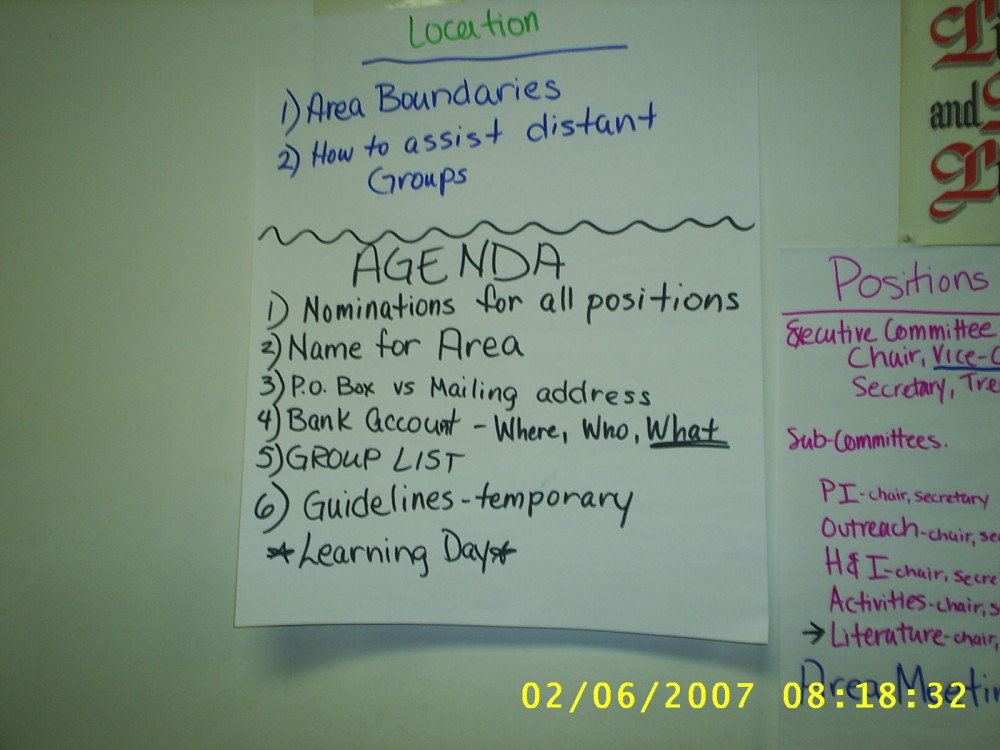 Location
1) Area Boundaries
2) How to assist distant
Groups
AGENDA
1) Nominations for all positions
2) Name for Area
3) P.O. Box vs Mailing address
4) Bank Account - Where, Who, What
5) GROUP LIST
6) Guidelines - temporary
*Learning Day*
and
Positions
Executive Committee
Chair, Vice-C
Secretary, Tre
Sub-Committees.
PI - chair, secretary
Outreach - chair, se
H & I - chair, secre
Activities - chair, s
→ Literature - chair,
Area Meetin
02/06/2007 08:18:32